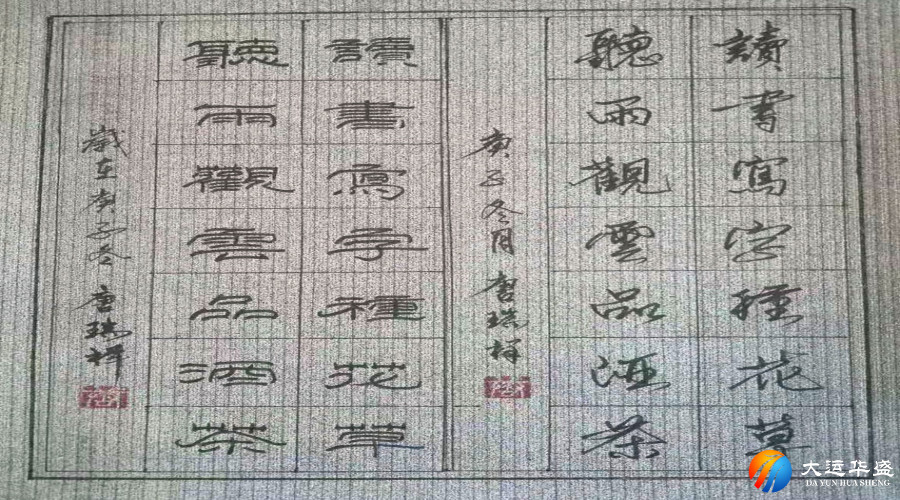 讀書寫字種花草
聽雨觀雲品酒茶
庚子冬月 唐瑞祥
讀書寫字種花草
聽雨觀雲品酒茶
歲在庚子冬 唐瑞祥
大运华盛
DA YUN HUA SHENG